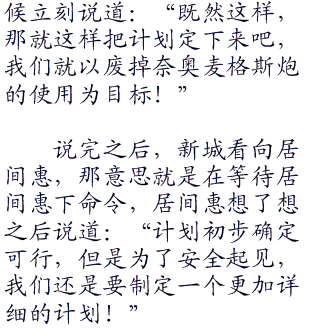 候立刻说道：“既然这样，
那就这样把计划定下来吧，
我们就以废掉奈奥麦格斯炮
的使用为目标！”
说完之后，新城看向居
间惠，那意思就是在等待居
间惠下命令，居间惠想了想
之后说道：“计划初步确定
可行，但是为了安全起见，
我们还是要制定一个更加详
细的计划！”